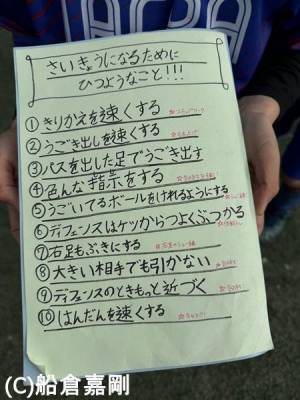 さいきょうになるために
ひつようなこと!!!
① きりかえを速くする
② うごき出しを速くする
③ パスを出した足でうごき出す
④ 色んな指示をする
⑤ うごいてるボールをけれるようにする
⑥ ディフェンスはケツからつよくぶつかる
⑦ 右足もぶきにする
⑧ 大きい相手でも引かない
⑨ ディフェンスのときもっと近づく
⑩ はんだんを速くする
(C)船倉嘉剛